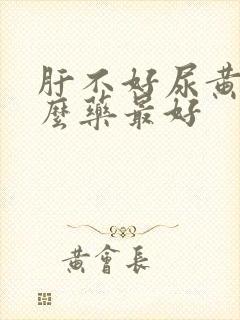 肝不好尿黄
麼藥最好
黄會長